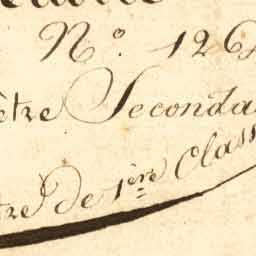 N.° 126
être Seconda
tre de 1ère Class